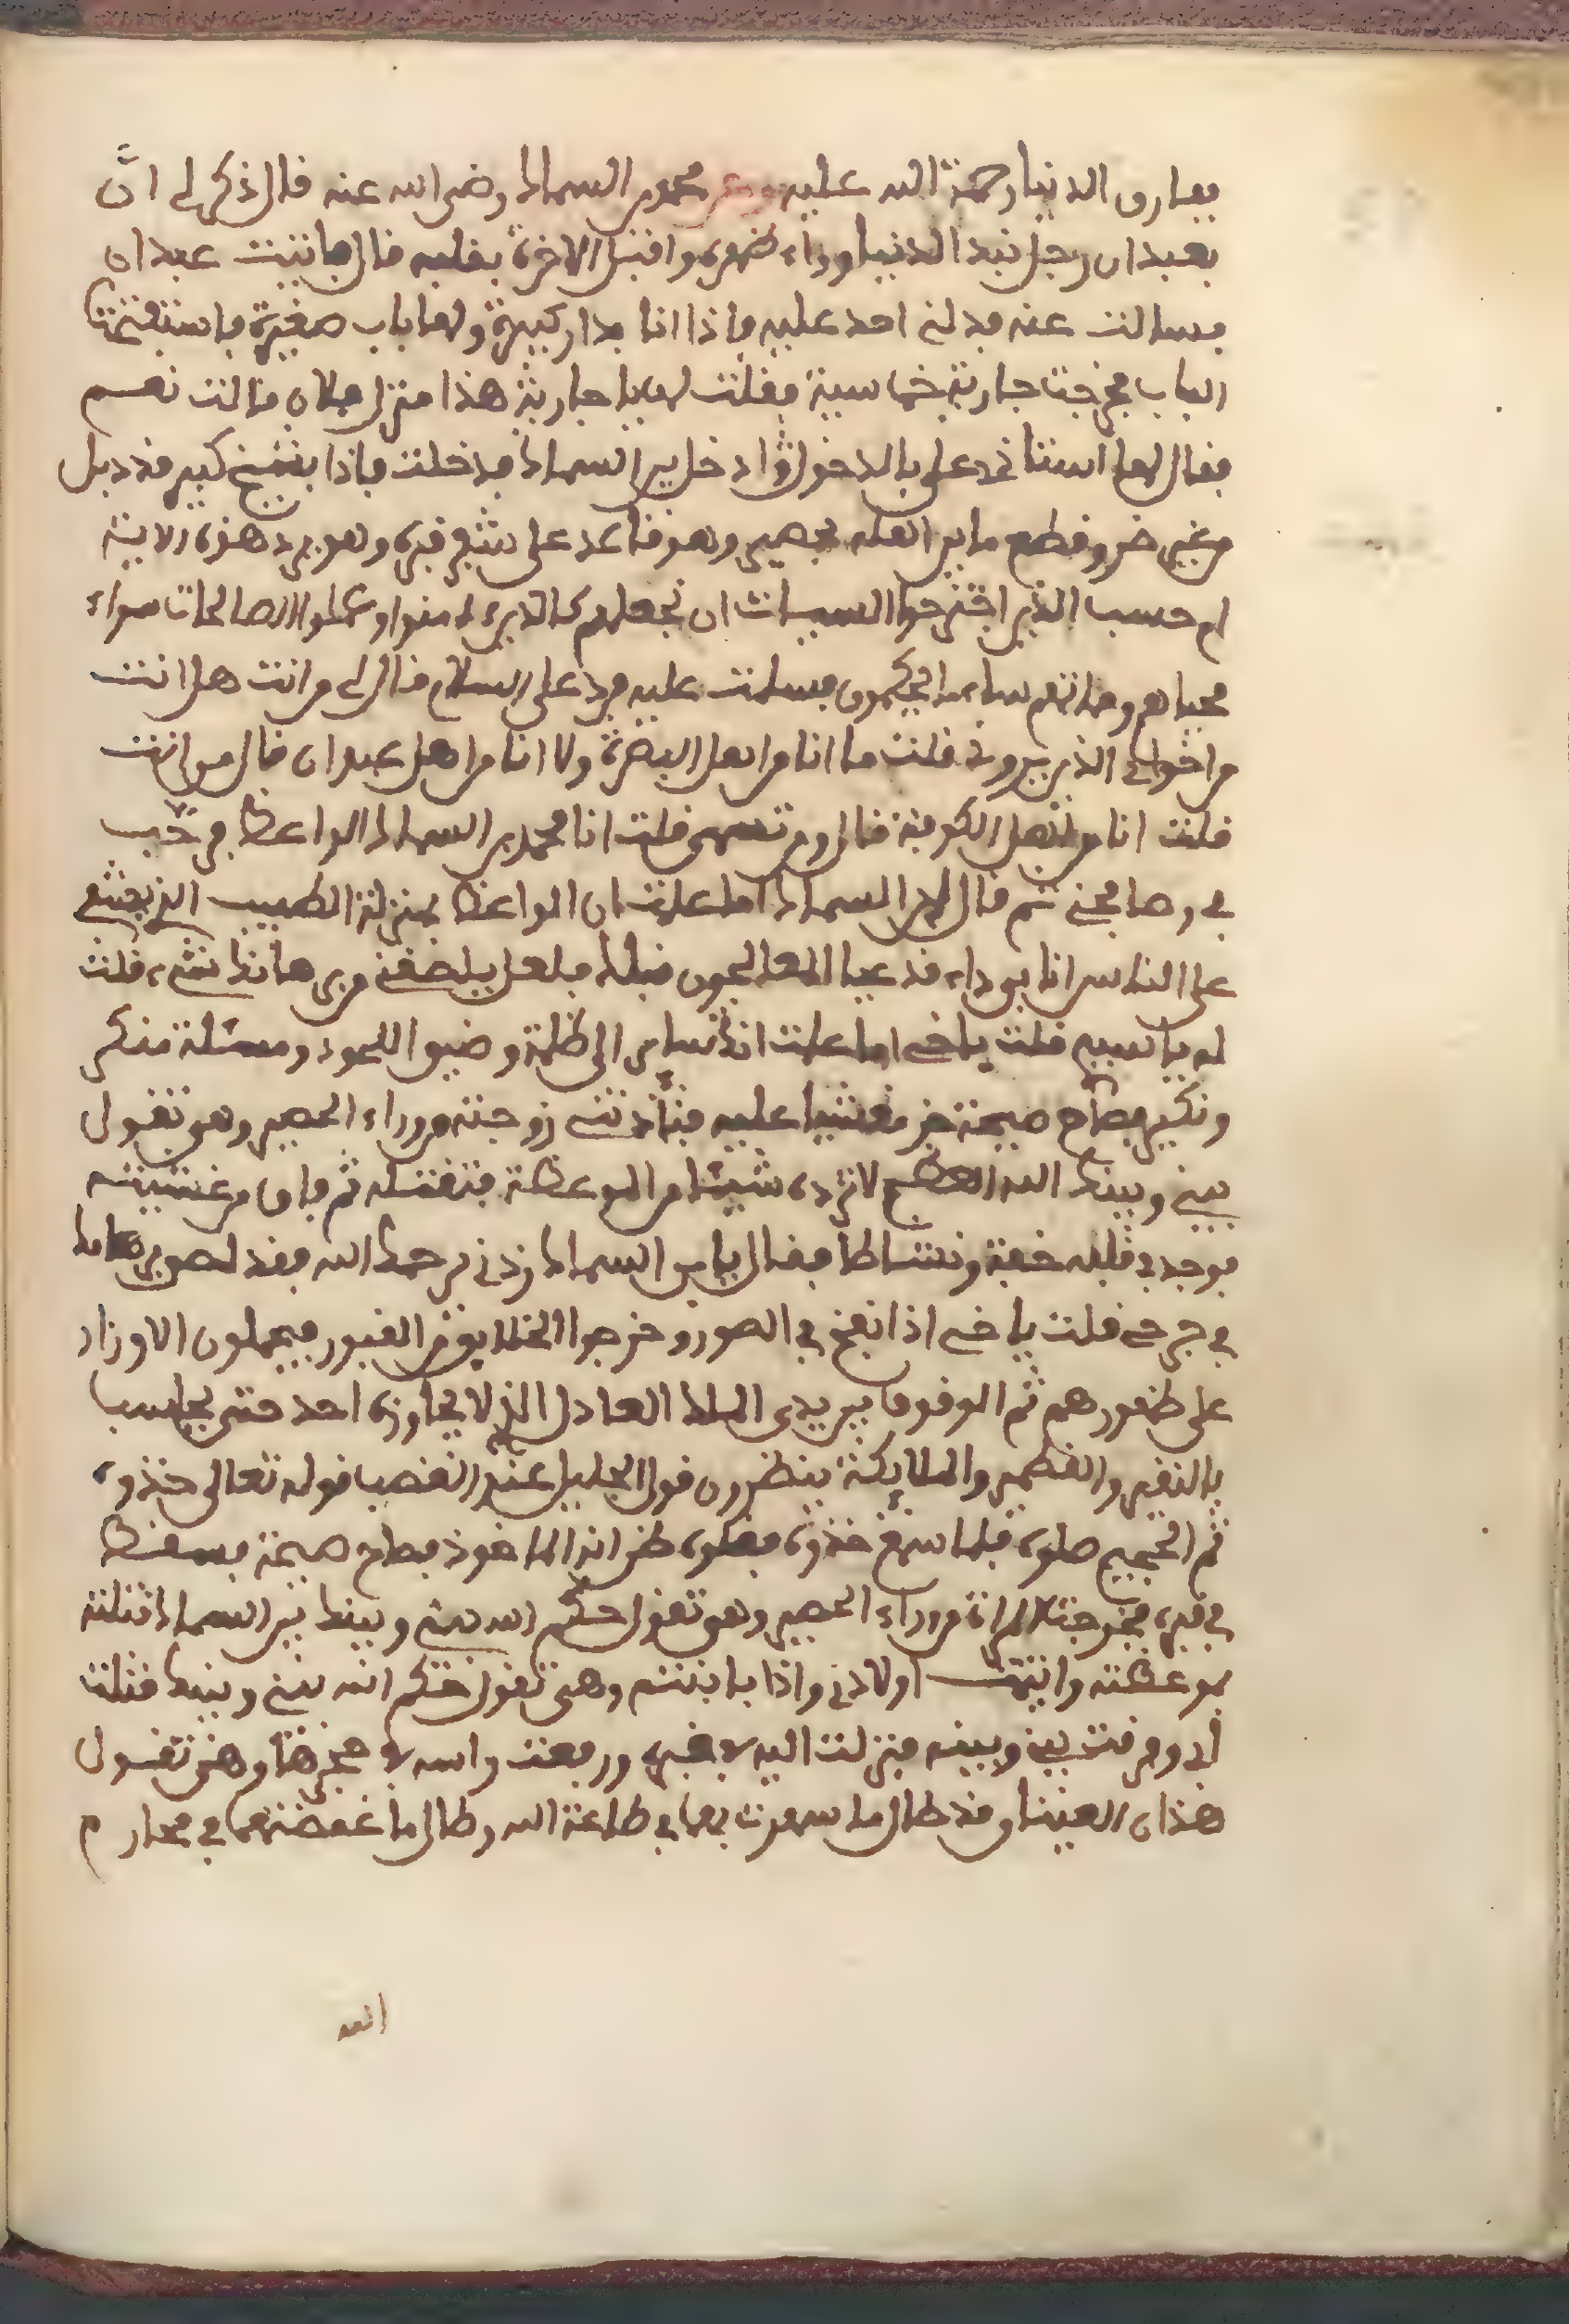 ففارق الدنيا رحمة الله عليه وعن محمد بن السماك رضي الله عنه قال ذكر لي ان
بعبدان رجل نبذ الدنيا وراء ظهره واقبل الاخرة بقلبه قال فاتيت عبدان
فسالت عنه فدلني احد عليه فاذا انا بدار كبيرة ولها باب صغيرة فاستفتحت
الباب فخرجت جارية خماسية فقلت لها يا جارية هذا منزل فلان قالت نعم
فقال لها استاذني علي بالدخول ادخل يا ابن السماك فدخلت فاذا بشيخ كبير قد ذبل
من غير ضر وقطع ما بين بحصير وهو قاعد على شفير قبره وهو يردد هذه الاية
ام حسب الذين اجترحوا السيئات ان نجعلهم كالذين ءامنوا وعملوا الصالحات سواء
محياهم ومماتهم ساء ما يحكمون فسلمت عليه فرد علي السلام قال لي من انت هل انت
من اخواني الذين يزوروني قلت ما انا من اهل البصرة ولا انا من اهل عبدان قال من انت
قلت انا من اهل الكوفة قال ومن تسمى قلت انا محمد بن السماك الواعظ فرحب
بي وصافحني ثم قال يا ابن السماك اما علمت ان الواعظ بمنزلة الطبيب الذي يشفي
على الناس انا بي داء قد عيا المعالجون قبلك فلعل يلصقني مرهمك شيء قلت
له يا سببه قلت يا اخي اما علمت انك تساير الى ظلمة وضيق اللحود ومسئلة منكر
ونكير فصاح صيحة خر مغشيا عليه فنادت زوجته من وراء الحصير وهو تقول
بيني وبينك الله العظيم لا تزده شيئا من الموعظة فتقتله ثم فاق من غشيته
فوجد في قلبه خفة ونشاطا فقال يا ابن السماك زدني يرحمك الله فقد لصق مرهمك
في جرحي قلت يا اخي اذا نفخ في الصور وخرجوا الخلايق من القبور فيحملون الاوزار
على ظهورهم ثم الوقوف بين يدي الملك العادل الذي لا يجاوزه احد حتى يحاسب
بالنقير والقطمير والملائكة ينظرون قول الجليل عند الغضب قوله تعالى خذوه
ثم الجحيم صلوه فلما سمع خذوه فغلوه ظن انه الماخوذ فصاح صيحة فسقط
في قبره فخرجت المراة من وراء الحصير وهو تقول حكم الله بيني وبينك يا ابن السماك قتلته
بموعظته وايتمت اولادي واذا بابنته وهي تقول حكم الله بيني وبينك قتلت
ابي وفرقت بيني وبينه فنزلت اليه لاغبره ورفعت راسه لا حجرها وهي تقول
هذان العينان قد طال ما سهرت بها في طاعة الله وطال ما غمضتهما في محارم
الله